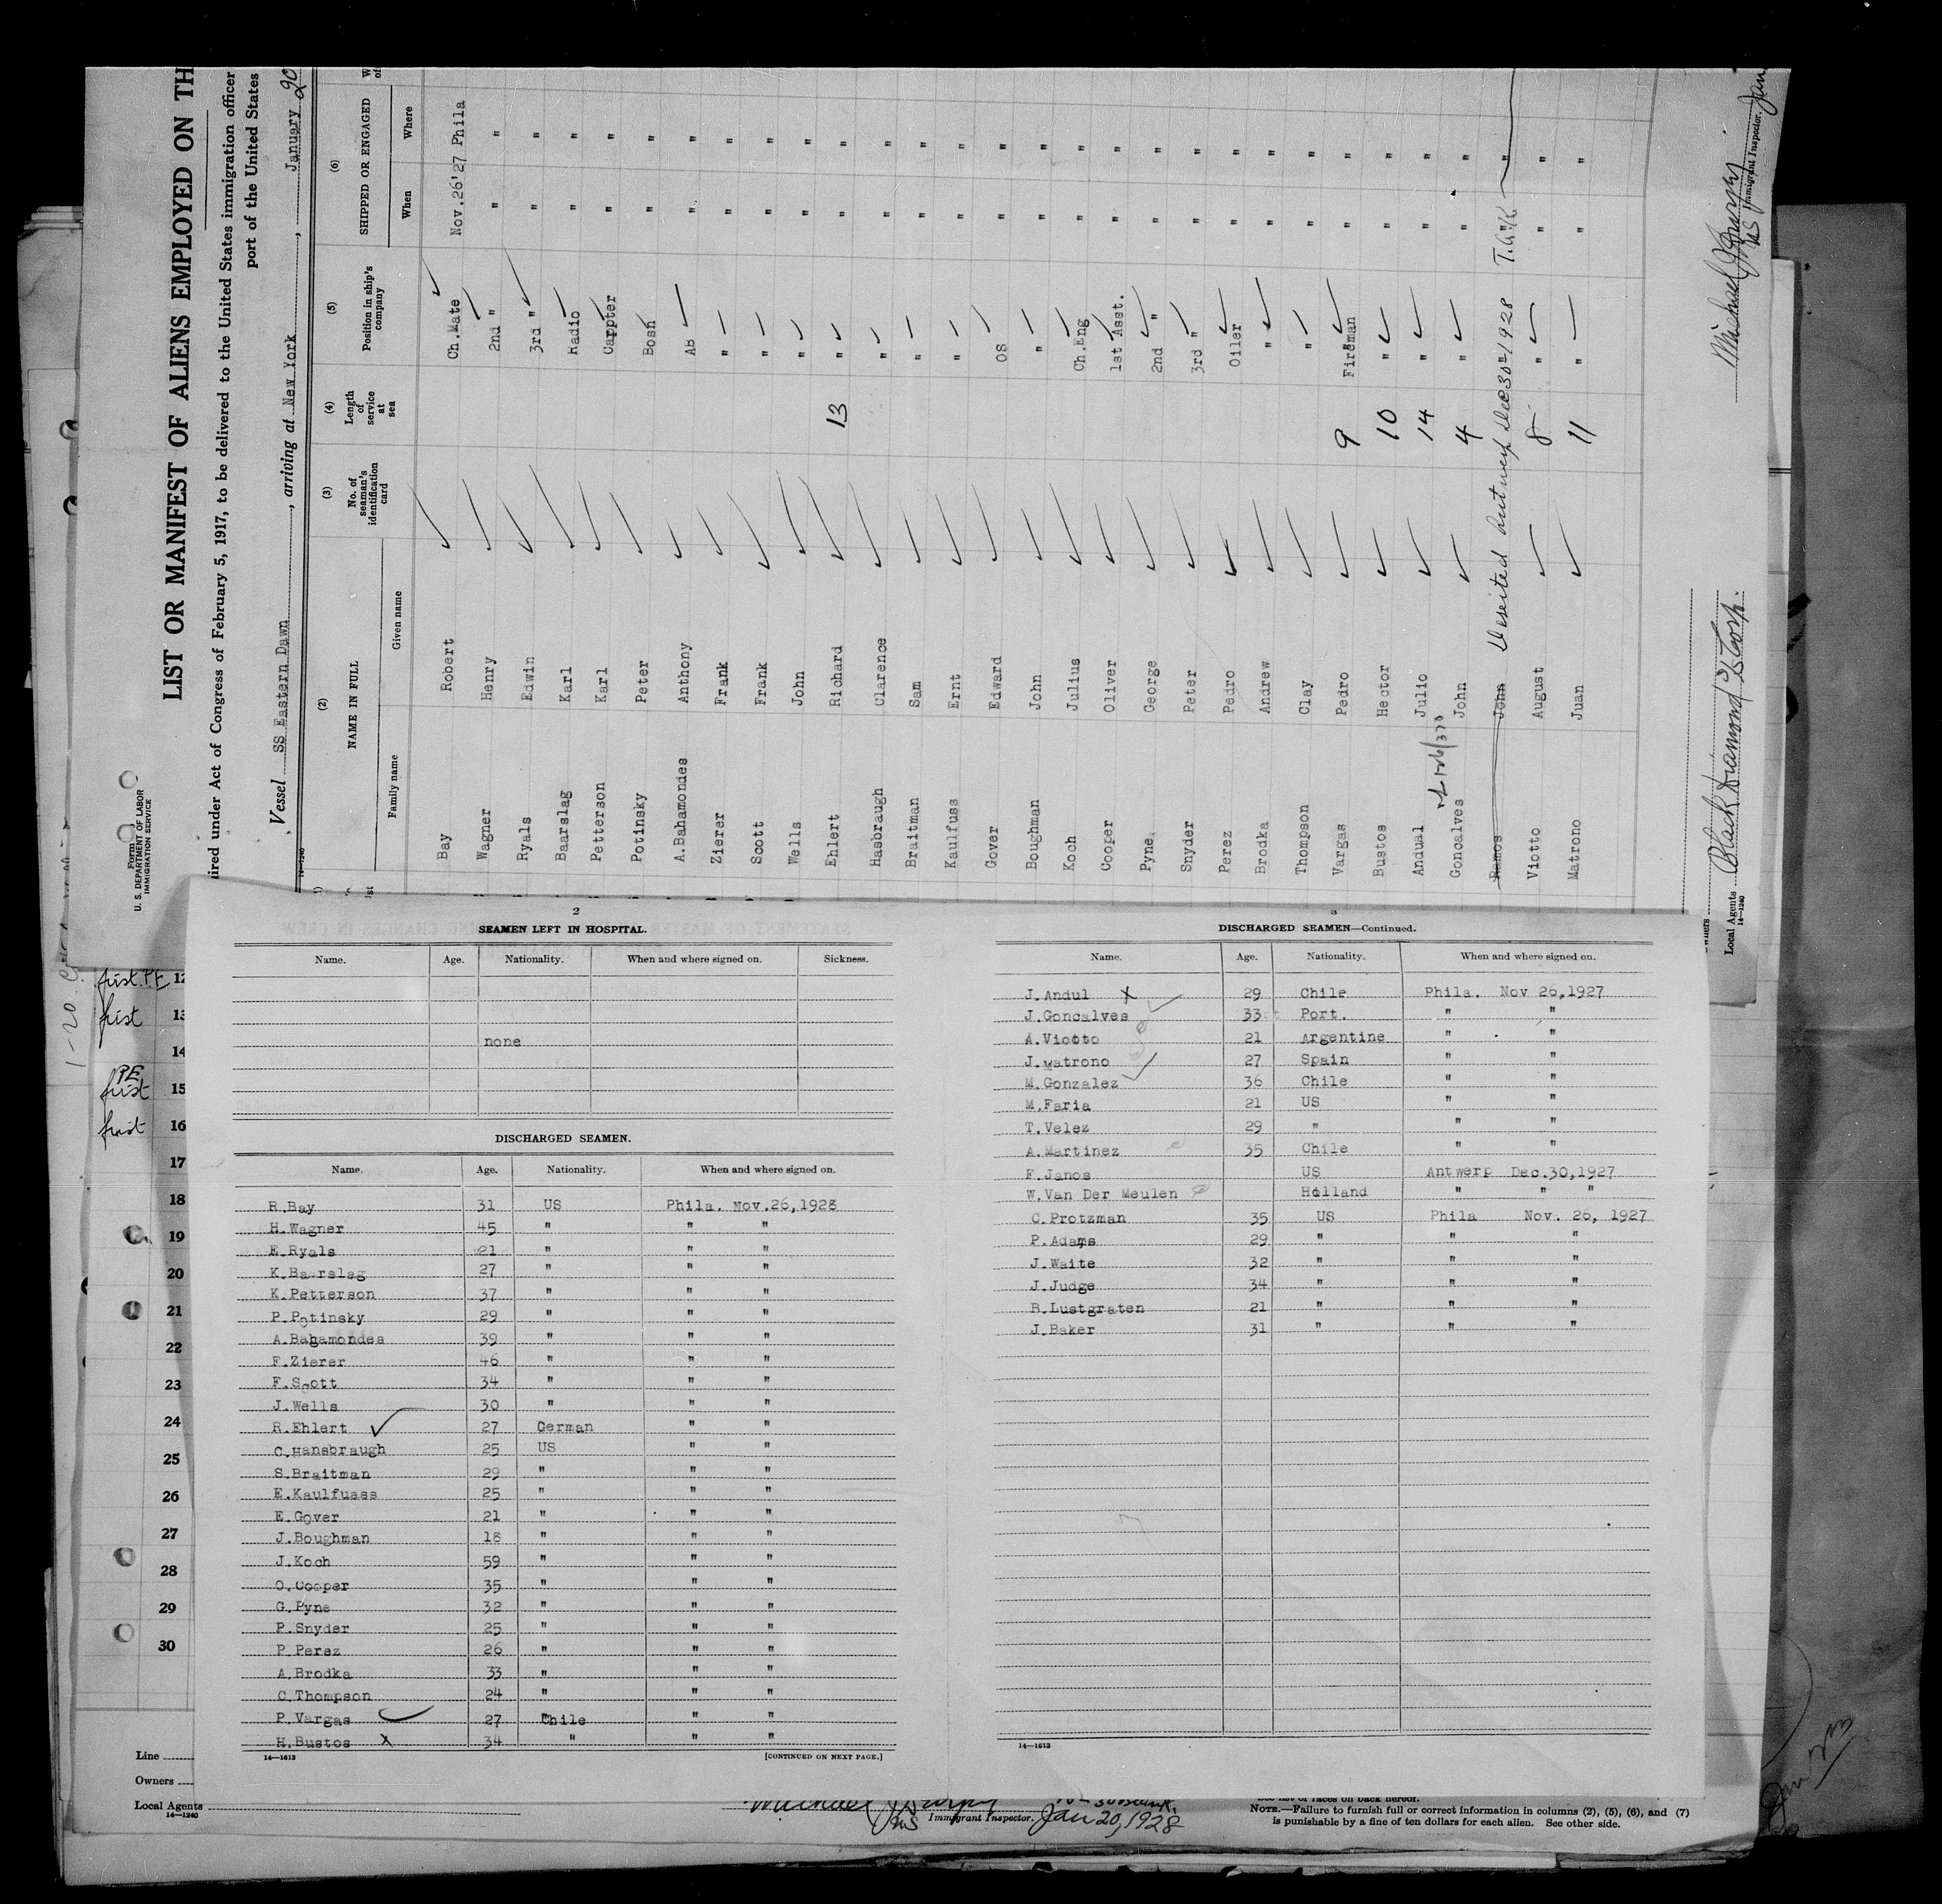 LIST OR MANIFEST OF ALIENS EMPLOYED ON TH
ired under Act of Congress of February 5, 1917, to be delivered to the United States immigration officer
port of the United States
Form
U. S. DEPARTMENT OF LABOR
IMMIGRATION SERVICE
Vessel SS Eastern Dawn, arriving at New York, January 20
14-1240
(2) (3) (4) (5) (6)
NAME IN FULL No. of seaman's identification card Length of service at sea Position in ship's company SHIPPED OR ENGAGED
Family name Given name When Where
Bay Robert Ch.Mate Nov.26'27 Phila
Wagner Henry 2nd " " "
Ryals Edwin 3rd " " "
Baarslag Karl Radio " "
Petterson Karl Carpter " "
Potinsky Peter Bosn " "
A.Bahamondes Anthony AB " "
Zierer Frank " " "
Scott Frank " " "
Wells John " " "
Ehlert Richard 13 " " "
Hasbraugh Clarence " " "
Braitman Sam " " "
Kaulfuss Ernt " " "
Gover Edward OS " "
Boughman John " " "
Koch Julius Ch.Eng " "
Cooper Oliver 1st Asst. " "
Pyne George 2nd " " "
Snyder Peter 3rd " " "
Perez Pedro Oiler " "
Brodka Andrew " " "
Thompson Clay " " "
Vargas Pedro 9 Fireman " "
Bustos Hector 10 " " "
Andual Julio 14 " " "
Goncalves John 4 " " "
Ramos John Deserted Antwerp Dec 30 - 1928
Viotto August 8 " " "
Matrono Juan 11 " " "
Local Agents Black Diamond SS Corp.
14-1240
Immigrant Inspector.
2
SEAMEN LEFT IN HOSPITAL.
Name. Age. Nationality. When and where signed on. Sickness.
none
DISCHARGED SEAMEN.
Name. Age. Nationality. When and where signed on.
R.Bay 31 US Phila. Nov.26,1928
H.Wagner 45 " " "
E.Ryals 21 " " "
K.Baarslag 27 " " "
K.Petterson 37 " " "
P.Potinsky 29 " " "
A.Bahamondes 39 " " "
F.Zierer 46 " " "
F.Scott 34 " " "
J.Wells 30 " " "
R.Ehlert 27 German " "
C.Hansbraugh 25 US " "
S.Braitman 29 " " "
E.Kaulfuass 25 " " "
E.Gover 21 " " "
J.Boughman 18 " " "
J.Koch 59 " " "
O.Cooper 35 " " "
G.Pyne 32 " " "
P.Snyder 25 " " "
P.Perez 26 " " "
A.Brodka 33 " " "
C.Thompson 24 " " "
P.Vargas 27 Chile " "
H.Bustos X 34 " " "
14—1613 [CONTINUED ON NEXT PAGE.]
3
DISCHARGED SEAMEN—Continued.
Name. Age. Nationality. When and where signed on.
J.Andul X 29 Chile Phila. Nov 26,1927
J.Goncalves 33 Port. " "
A.Viotto 21 Argentine " "
J.Matrono 27 Spain " "
M.Gonzalez 36 Chile " "
M.Faria 21 US " "
T.Velez 29 " " "
A.Martinez 35 Chile " "
F.Janos US Antwerp Dec.30,1927
W.Van Der Meulen Holland " " "
C.Protzman 35 US Phila Nov. 26, 1927
P.Adams 29 " " "
J.Waite 32 " " "
J.Judge 34 " " "
B.Lustgraten 21 " " "
J.Baker 31 " " "
14—1613
first P.E 12
first 13
14
PE
first 15
first 16
17
18
19
20
21
22
23
24
25
26
27
28
29
30
Line
Owners
Local Agents
14—1240
Immigrant Inspector. Jan 20, 1928
NOTE.—Failure to furnish full or correct information in columns (2), (5), (6), and (7)
is punishable by a fine of ten dollars for each alien. See other side.